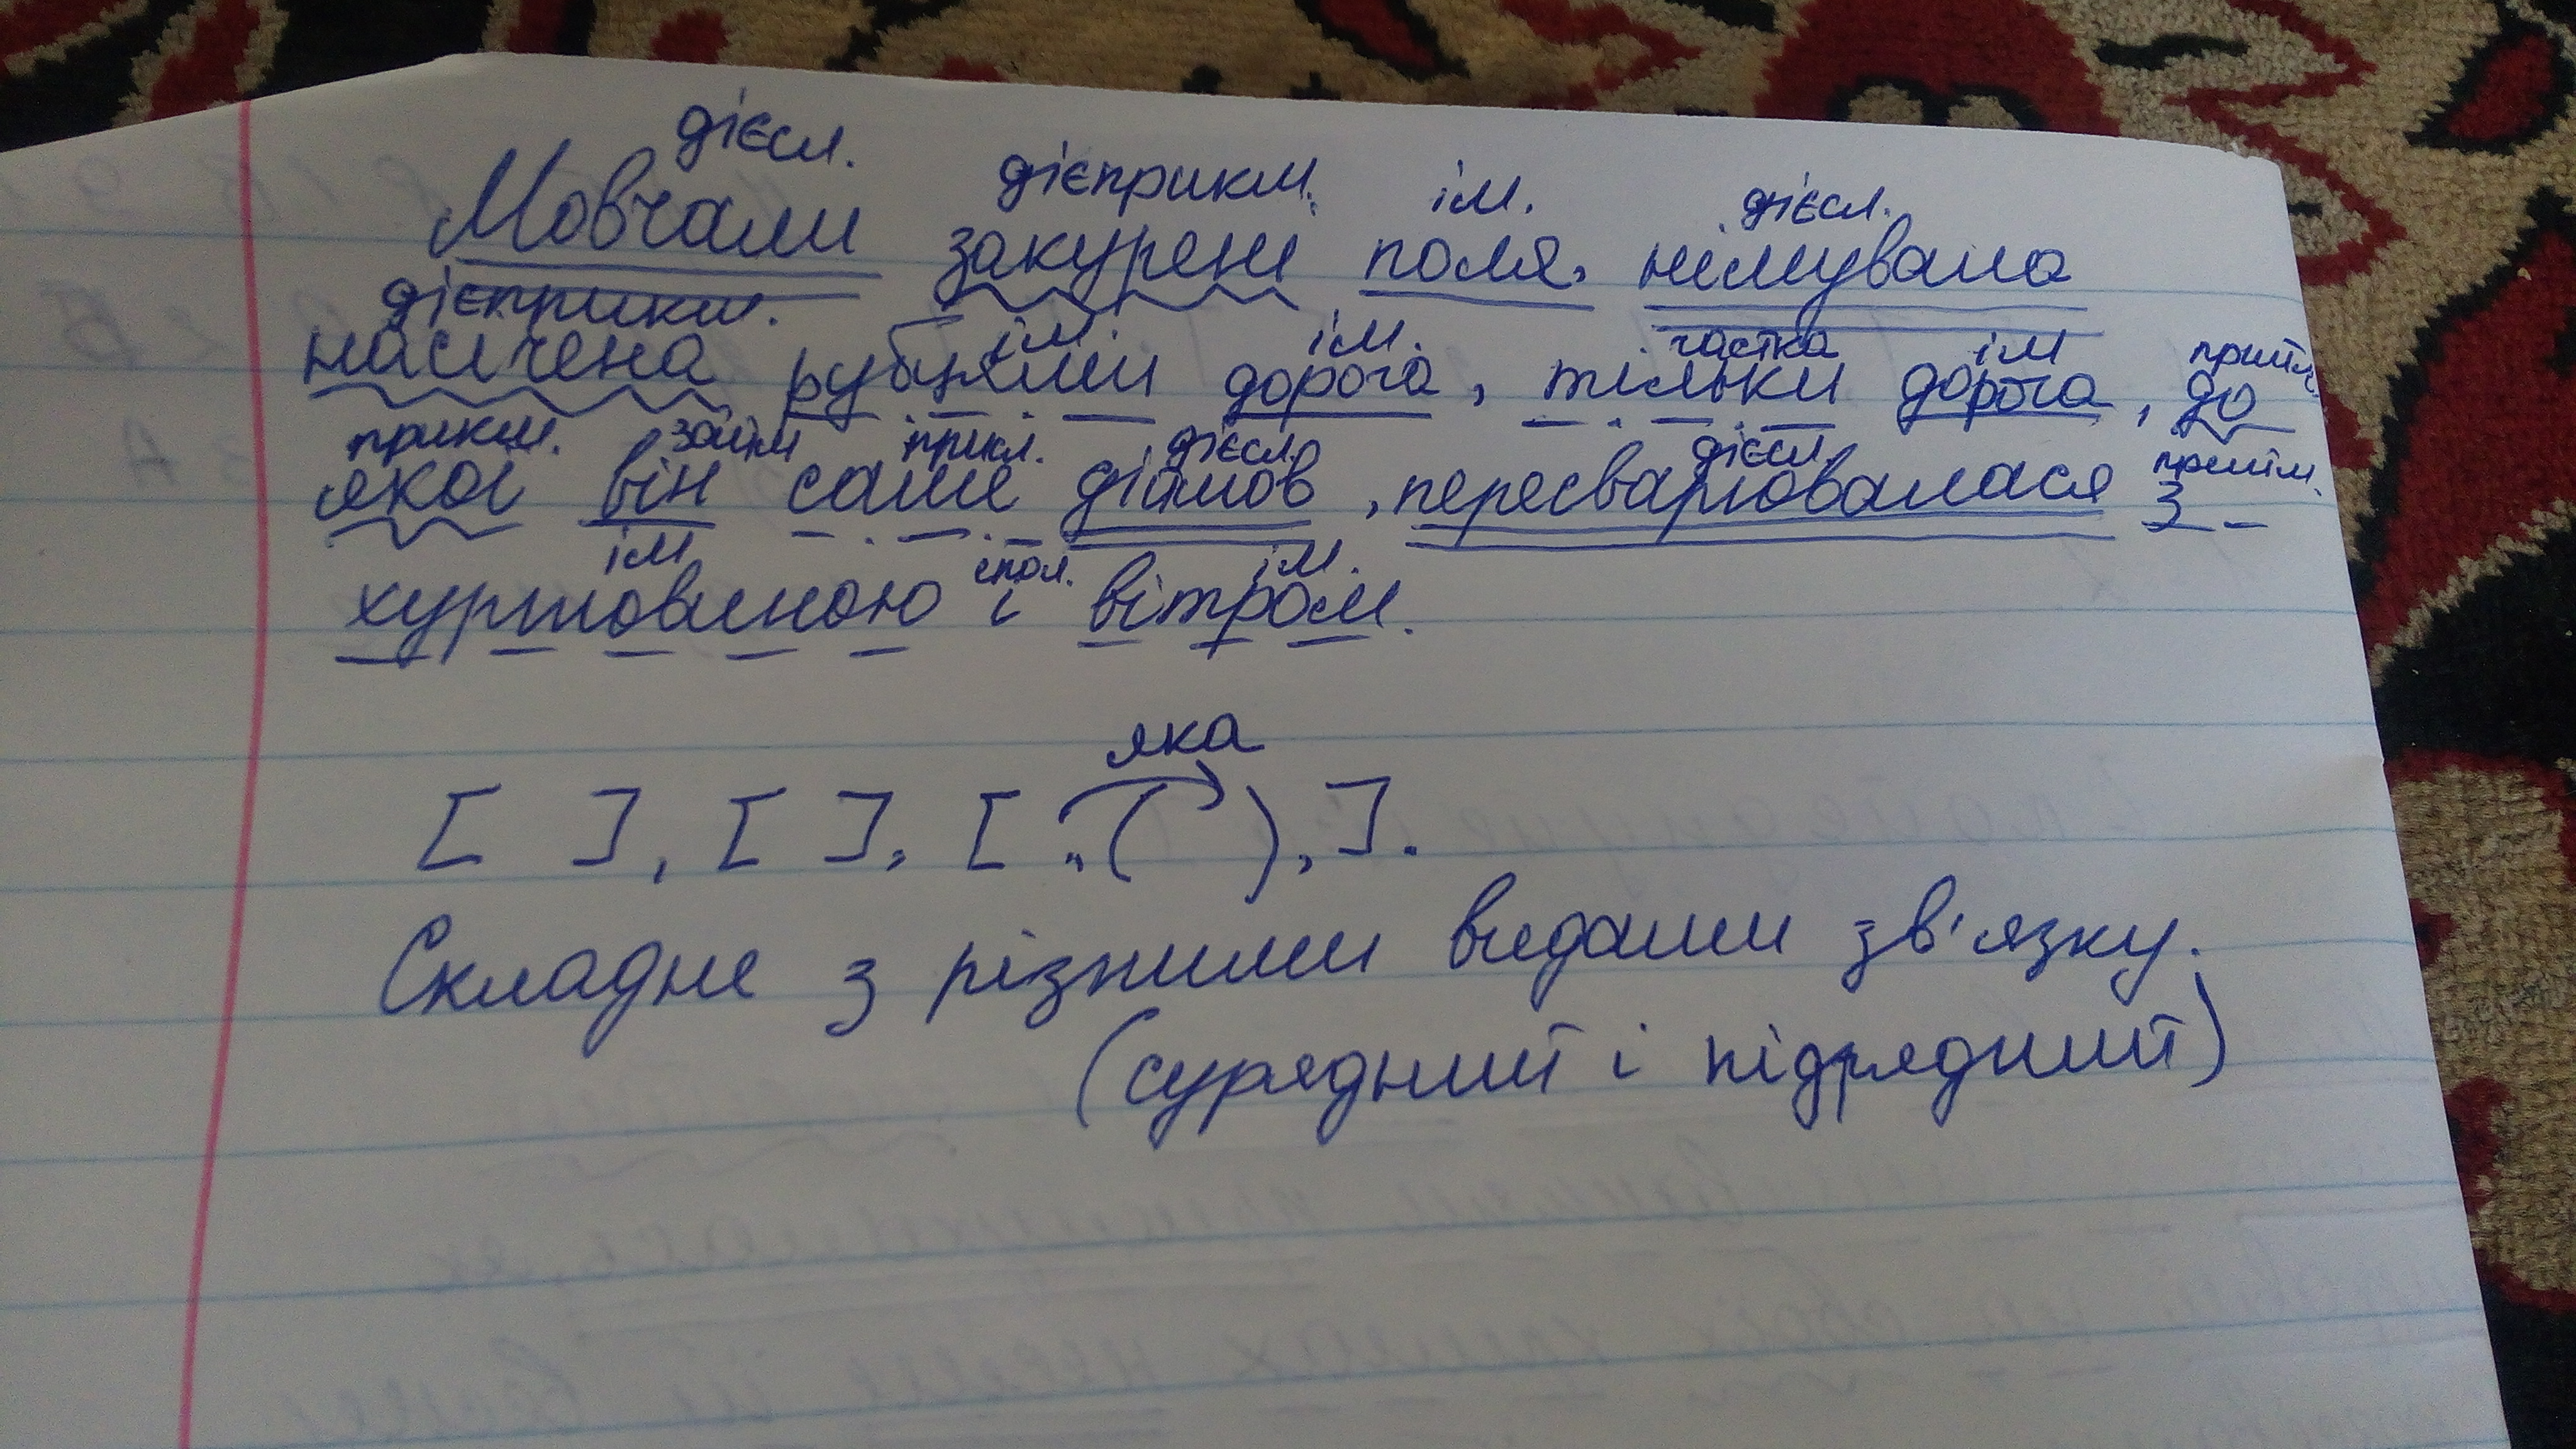 дієсл. дієприкм. ім. дієсл.
Мовчали закурені поля, німувала
дієприкм. ім. ім. частка ім прийм.
насичена рубцями дорога, тільки дорога, до
прикм. займ прикл. дієсл. дієсл. прийм.
якої він саме діймов, пересварювалася з
ім спол. ім.
хуртовиною і вітром.
яка
[ ], [ ], [ ,( ), ].
Складне з різними видами зв'язку.
(сурядний і підрядний)